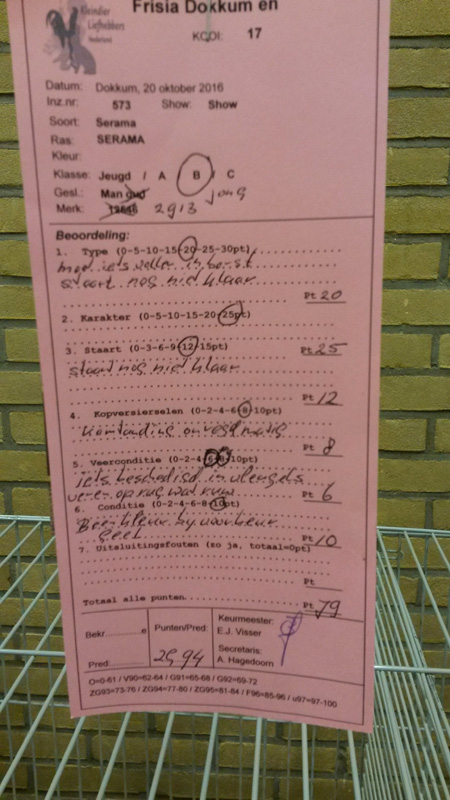 Kleindier
Liefhebbers
Nederland
Frisia Dokkum en
KOOI: 17
Datum: Dokkum, 20 oktober 2016
Inz.nr: 573 Show: Show
Soort: Serama
Ras: SERAMA
Kleur:
Klasse: Jeugd / A B / C
Gesl.: Man oud jong
Merk: 12846 2913
Beoordeling:
1. Type (0-5-10-15-20-25-30pt)
mag iets voller in borst
staart nog niet klaar
Pt 20
2. Karakter (0-5-10-15-20-25pt)
Pt 25
3. Staart (0-3-6-9-12-15pt)
staart nog niet klaar
Pt 12
4. Kopversierselen (0-2-4-6-8-10pt)
kamtanding onregelmatig
Pt 8
5. Veerconditie (0-2-4-6-8-10pt)
iets beschadigd in vleugels
veren op rug wat ruw
Pt 6
6. Conditie (0-2-4-6-8-10pt)
Beenkleur bij voorkeur
geel
Pt 10
7. Uitsluitingsfouten (zo ja, totaal=0pt)
Pt
Totaal alle punten
Pt 79
Bekr......e
Punten/Pred:
Keurmeester:
E.J. Visser
Secretaris:
A. Hagedoorn
Pred:
ZG 94
O=0-61 / V90=62-64 / G91=65-68 / G92=69-72
ZG93=73-76 / ZG94=77-80 / ZG95=81-84 / F96=85-96 / u97=97-100